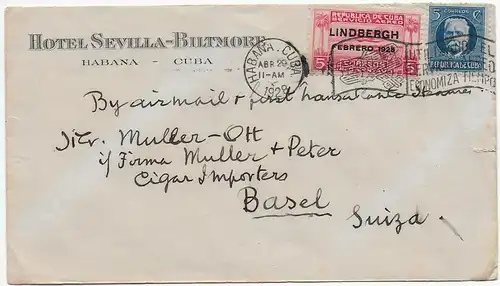 HOTEL SEVILLA-BILTMORE
HABANA - CUBA
REPUBLICA DE CUBA
LINDBERGH
FEBRERO 1928
5
CORREOS
5 C
REPUBLICA DE CUBA
HABANA, CUBA
ABR
11-AM
1928
ECONOMIZA TIEMPO
By airmail + first
Mr. Muller-Ott
i/ Firma Muller + Peter
Cigar Importers
Basel
Suiza.